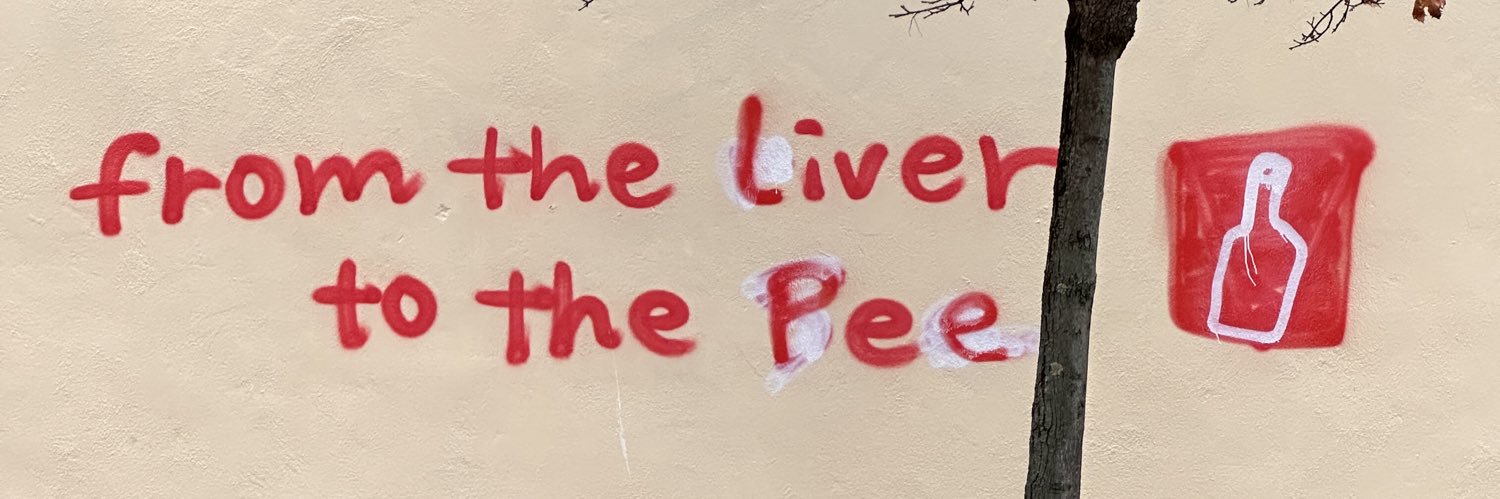 from the Liver
to the Pee